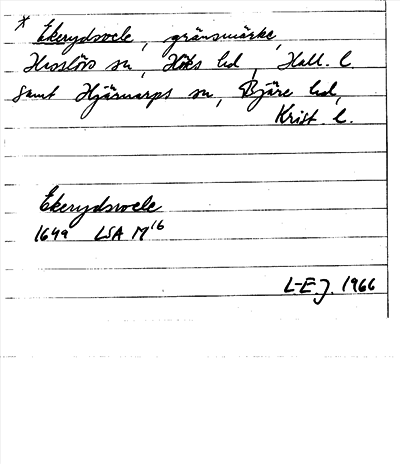 * Ekerydsvele, gränsmärke,
Hasslövs sn, Höks hd, Hall. l.
samt Hjärnarps sn, Bjäre hd,
Krist. l.
Ekerydsvele
1649 LSA M16
L-E.J. 1966